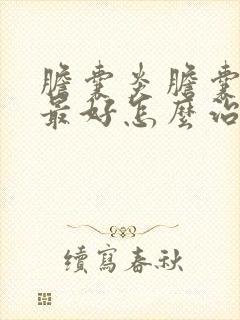 膽囊炎膽囊
最好怎麼治
續寫春秋